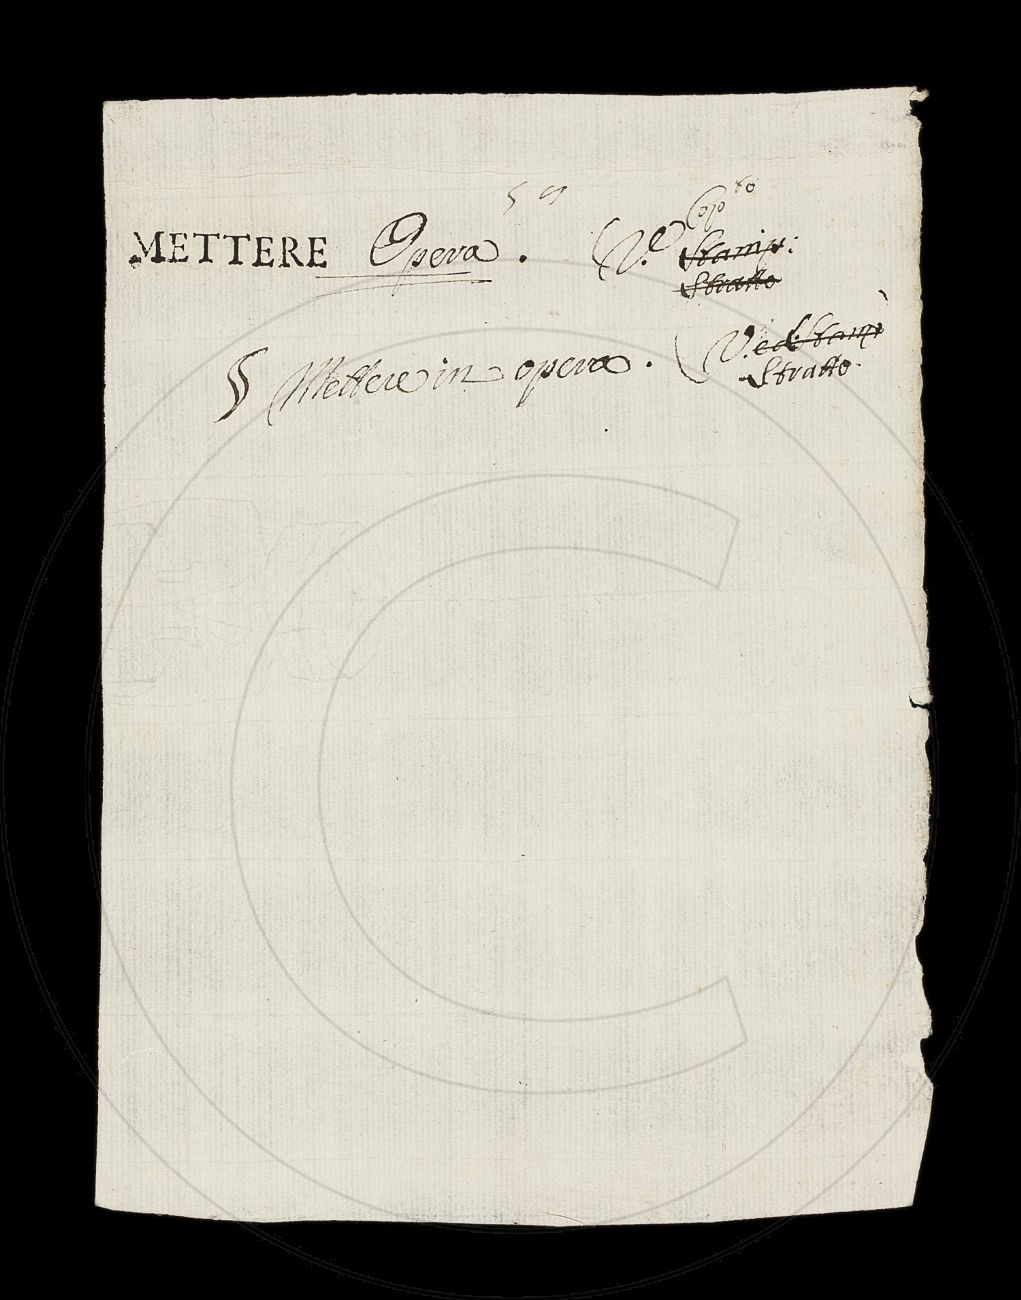 METTERE Opera. V.e Cop.to
Stamp:
Stratto
§ Mettere in opera. Ved: Stamp
Stratto.